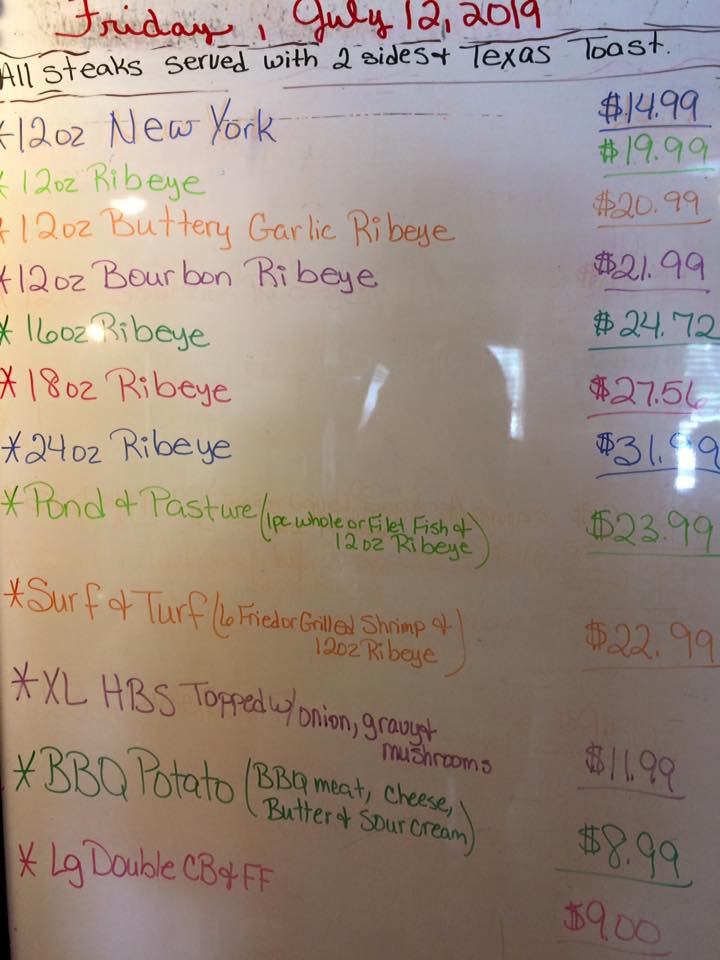 Friday, July 12, 2019
All steaks served with 2 sides & Texas Toast.
*12oz New York $14.99
*12oz Ribeye $19.99
*12oz Buttery Garlic Ribeye $20.99
*12oz Bourbon Ribeye $21.99
*16oz Ribeye $24.72
*18oz Ribeye $27.56
*24oz Ribeye $31.99
*Pond & Pasture (1pc whole or Filet Fish & $23.99
12oz Ribeye)
*Surf & Turf (6 Fried or Grilled Shrimp & $22.99
12oz Ribeye)
*XL HBS Topped w/ onion, gravy &
mushrooms $11.99
*BBQ Potato (BBQ meat, cheese,
Butter & Sour cream) $8.99
*Lg Double CB & FF $9.00